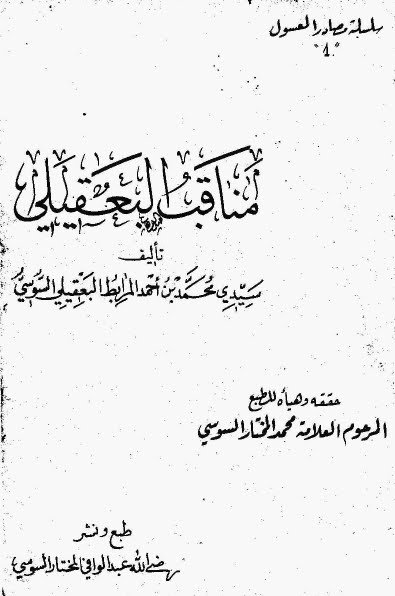 سلسلة مصادر المعسول
"1"
مناقب البَعقيلي
تأليف
سيِّدِي مُحَمَّد بْن أحمد المرابط البَعْقِيلي السُّوسيُّ
حققه وهيأه للطبع
المرحوم العلامة محمد المختار السوسي
طبع ونشر
رضى الله عبد الوافي المختار السوسي